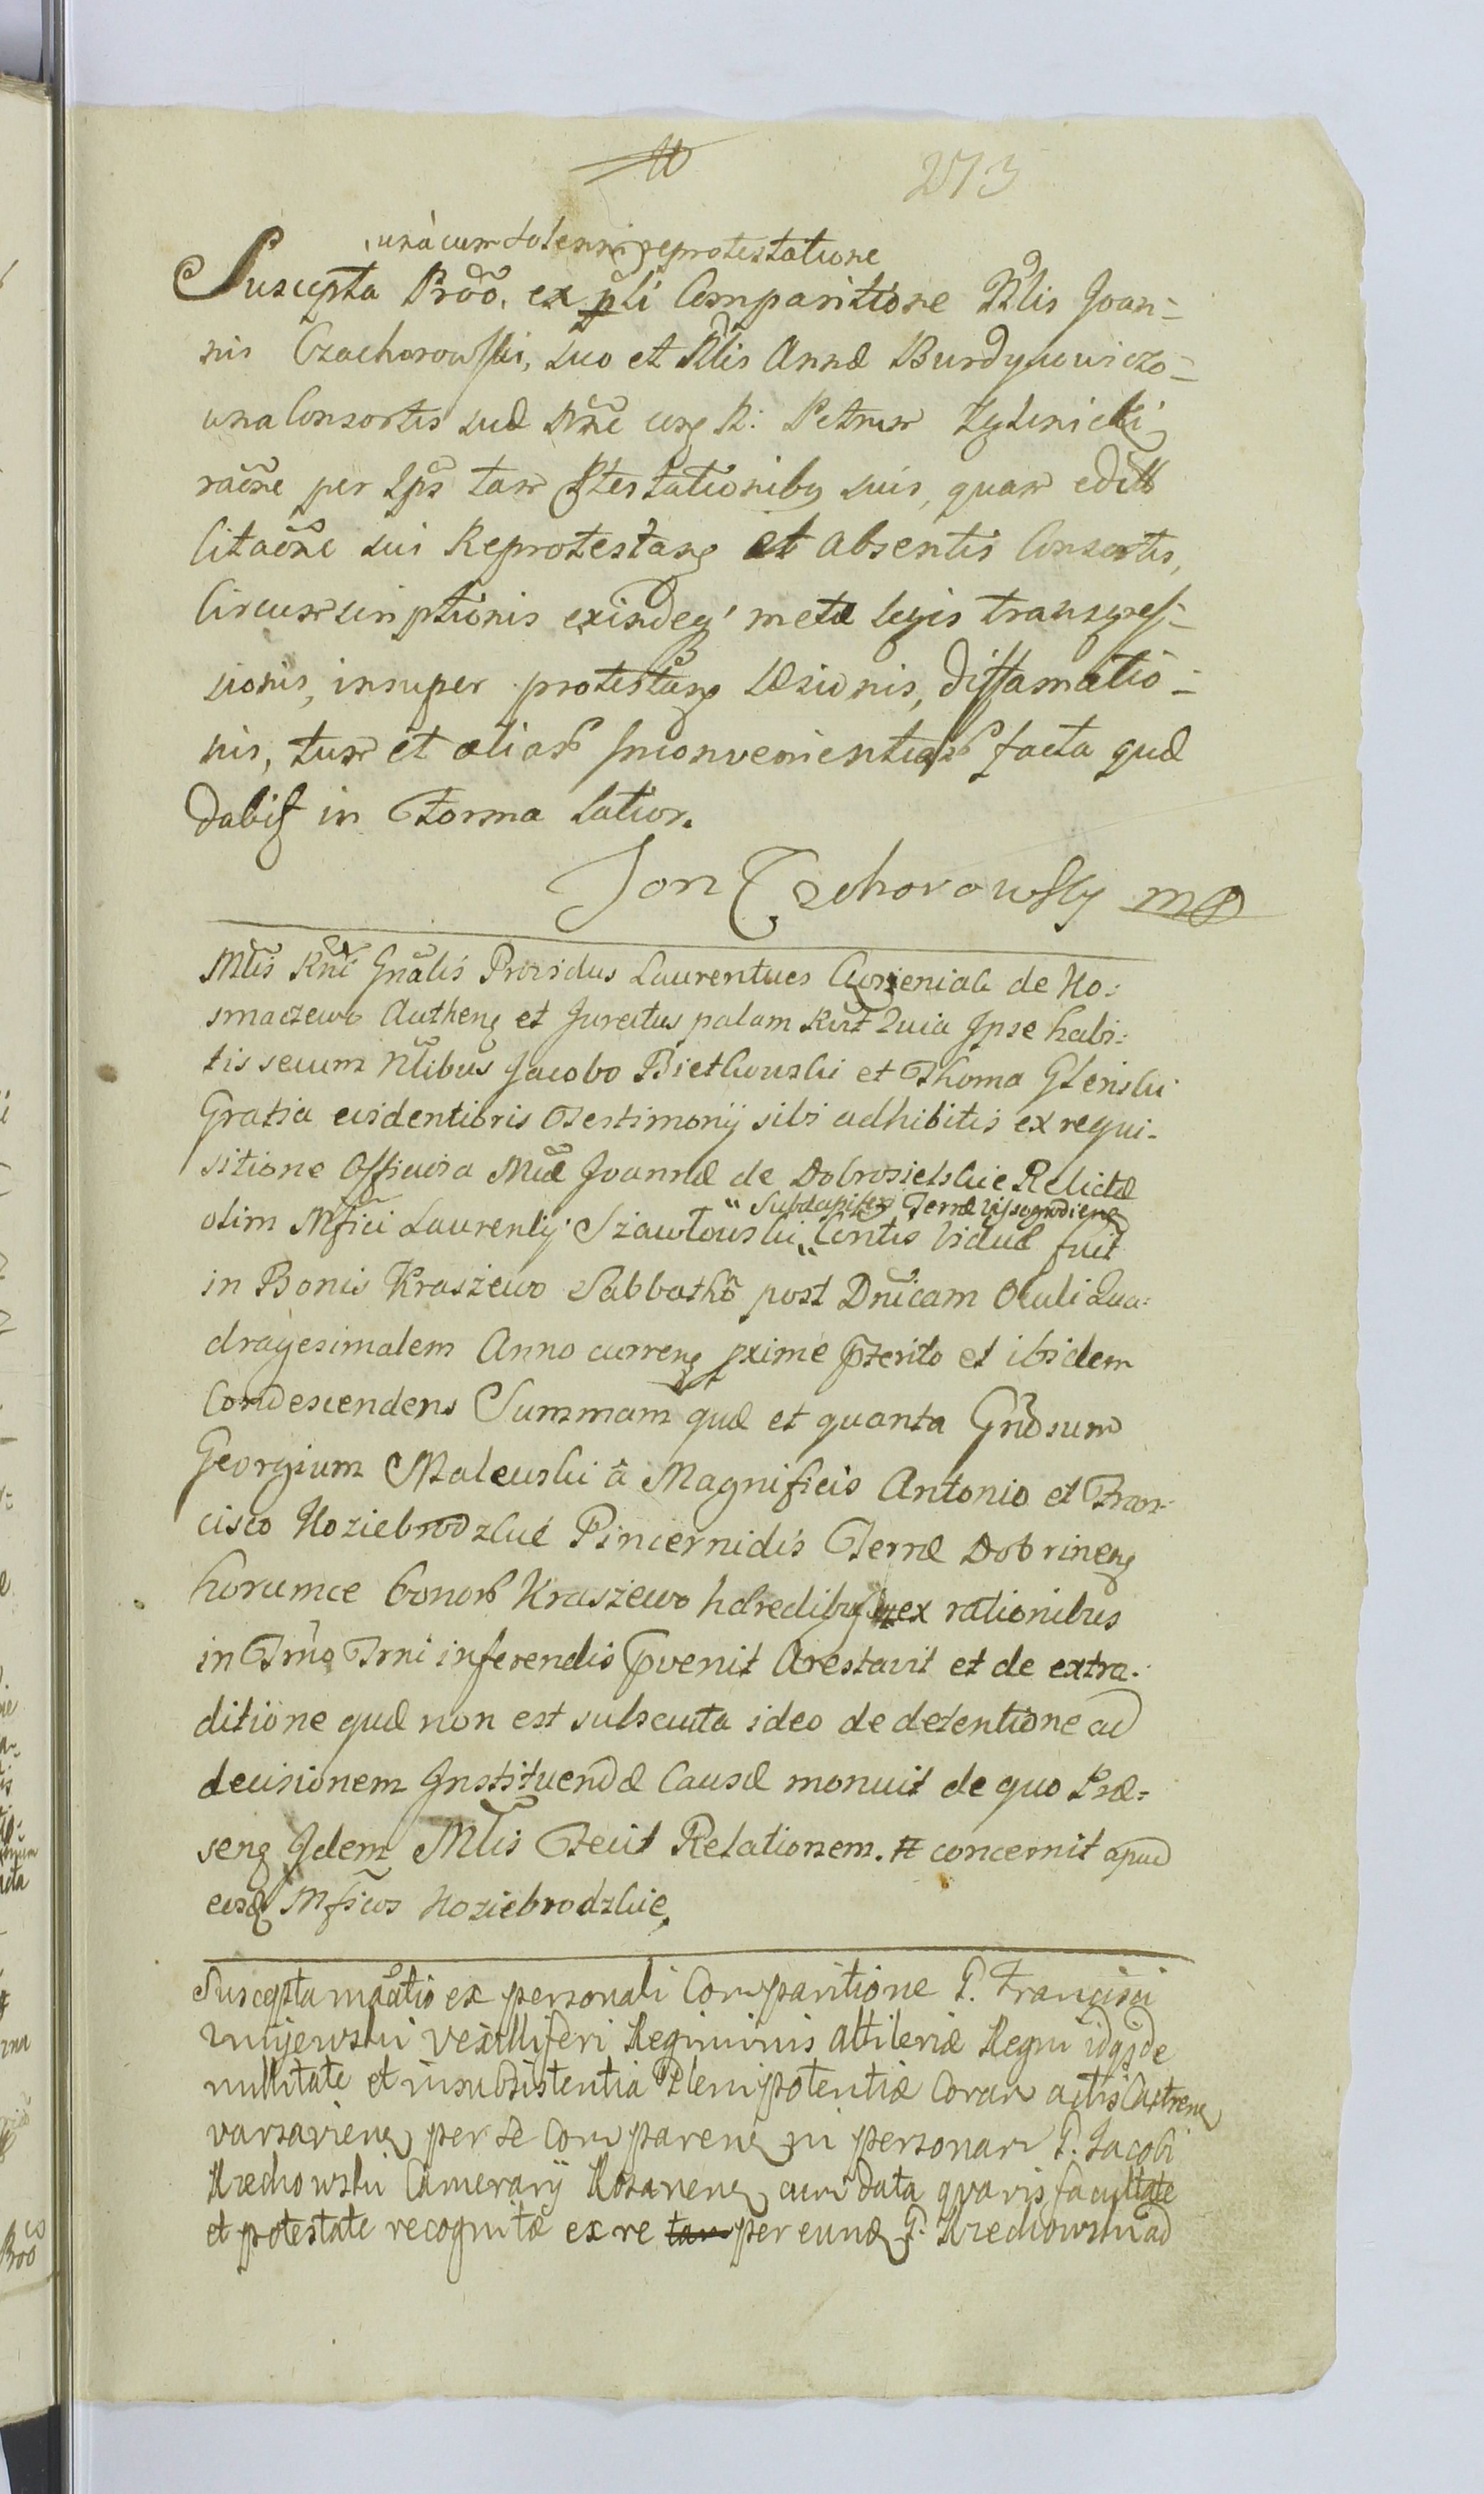 273
unà cum solenni reprotestatione
Suscepta Prõõ. ex pli Comparitione Nlis Joan=
nis Czachorowski, suo et Nlis Annæ Burdynowiczo=
wna Consortis suæ Nñe cong R: Petrum Zglenicki
raõne per Ips tam Ptestationibg suis, quam editt
Citaõne sui Reprotestang et absentis Consortis,
Circumscriptionis exindeq metæ legis transgres=
sionis, insuper protestang læsionis, diffamatio=
nis, tum et aliarb Inconvenientiarb facta quæ
dabit in Forma latior.
Jon Czchorowsky mp
Mlis Rñi Gnãlis Providus Laurentues de Ko=
smaczewo Autheng et Juratus palam Rvit Quia Ipse habi=
tis secum Nlibus Jacobo Bietkowski et Thoma Glinski
Gratia evidentioris Testimonij sibi adhibitis ex requi=
sitione Officiosa Mcæ Joannæ de Dobrosielskie Relictæ
olim Mfici Laurentij Szawłowski
" Subdapiferi Terræ Vyssogrodieng
" Contis Viduæ fuit
in Bonis Kraszewo Sabbathõ post Dnicam Oculi Qua=
dragesimalem Anno curreng pxime pterito et ibidem
Condescendens Summam quæ et quanta Gnõsum
Georgium Malewski à Magnificis Antonio et Fran=
cisco Koziebrodzkié Pincernidis Terræ Dobrineng
horumce bonorb Kraszewo hæredibg ex rationibus
in Tmo Trni inferendis pvenit Arestavit et de extra=
ditione quæ non est subsecuta ideo de detentione ad
decisionem Instituendæ Causæ monuit de quo Præ=
seng Idem Mlis Fecit Relationem. R concernit apud
eosd Mficos Koziebrodzkie.
Suscepta mãatio ex personali Comparitione G. Francisci
Zmijewski vexilliferi Regiminis Altileriæ Regni idq de
nullitate et insubsistentia Plenipotentiæ Coram actis Castreng
varsavieng per se Compareng in personam G. Jacobi
Krechowski Camerarij Rosaneng cum data quavis facultate
et potestate recognitæ ex re tam per eund G. Krechowski ad